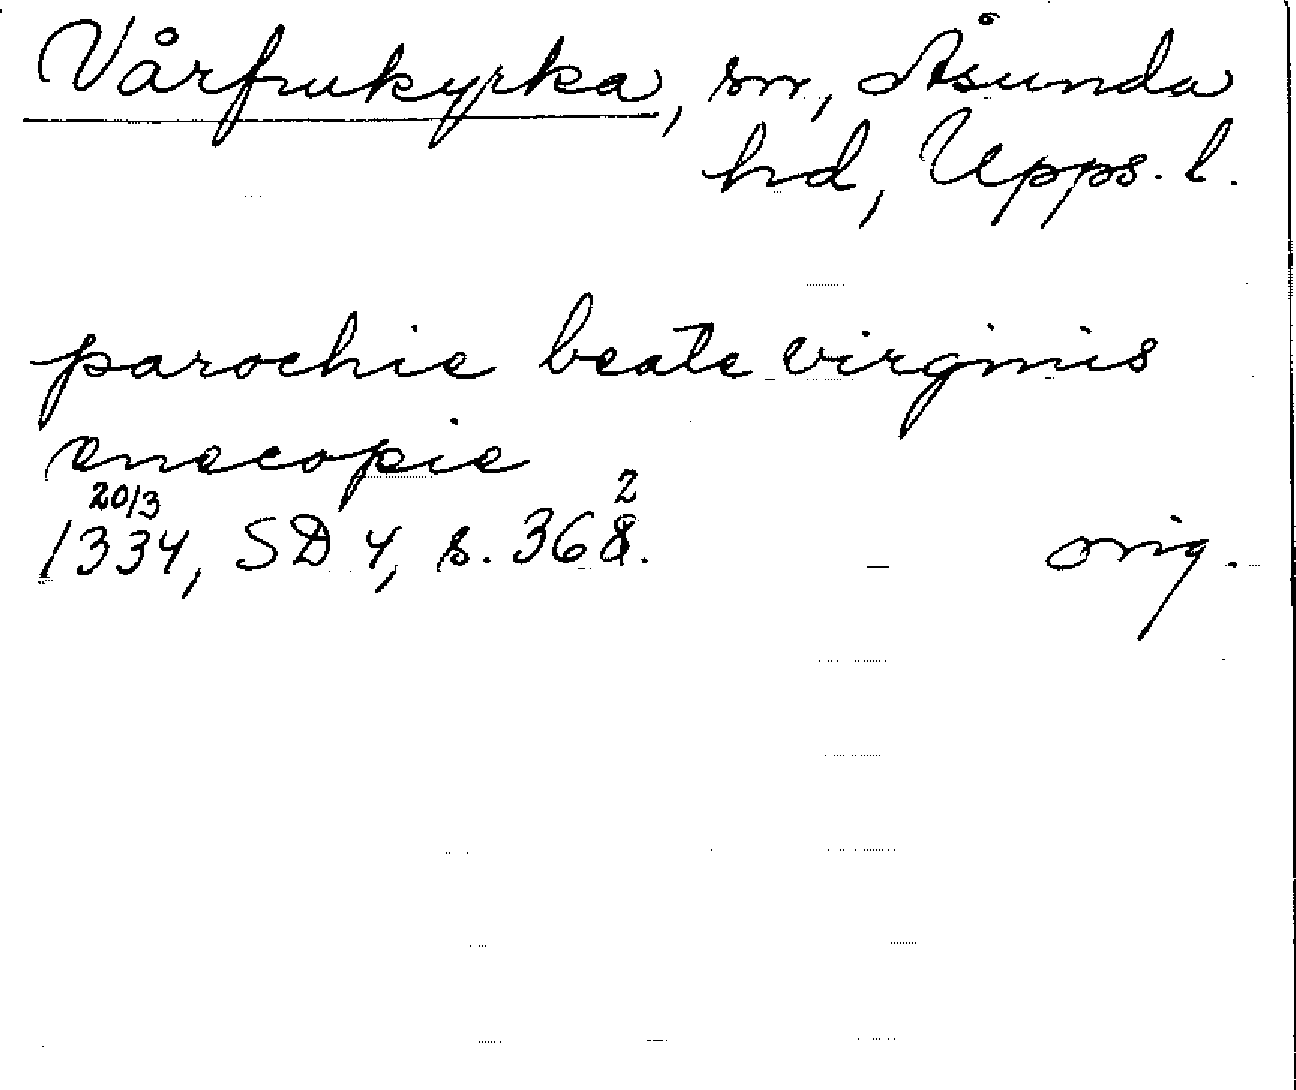 Vårfrukyrka, sn, Åsunda
hd, Upps. l.
parochie beate virginis
enecopie
20/3 2
1334, SD 4, s. 368. orig.